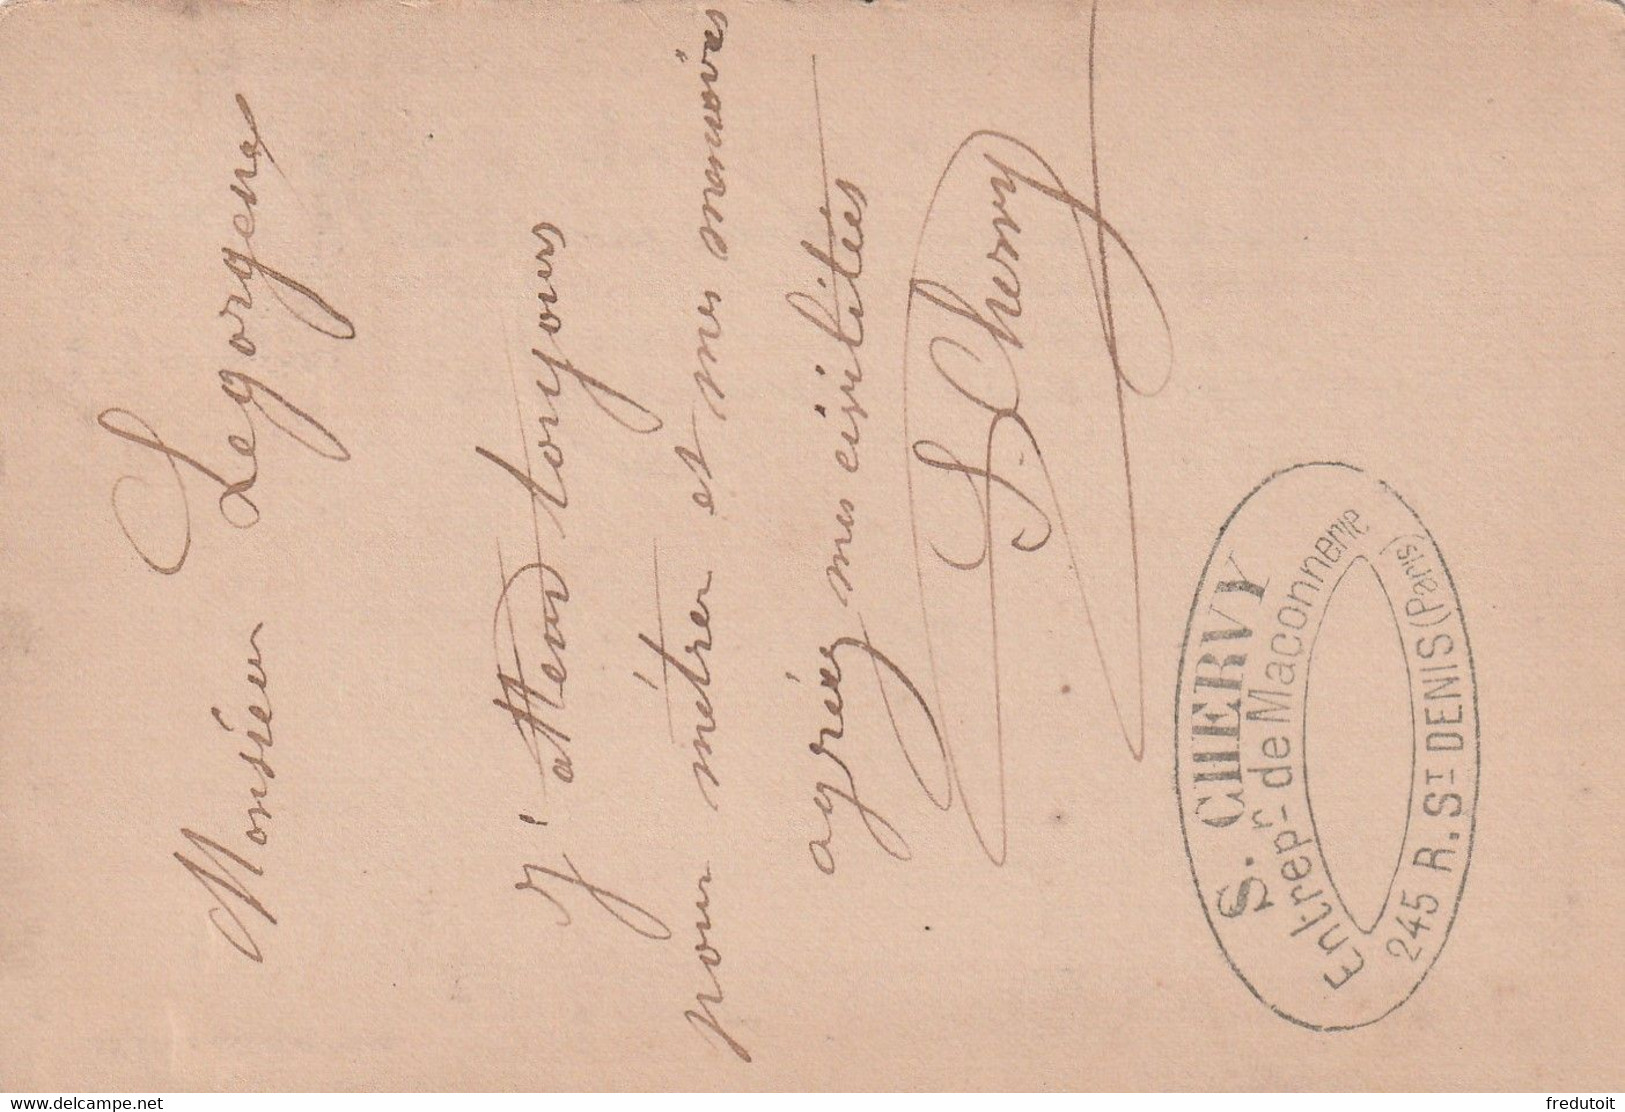 Monsieur Legorgeu
J'attend toujours
pour métrer et mes memoires
agréez mes civilitées
S. Chervy
S. CHERVY
Entrepr de Maconnerie
245 R. ST DENIS (Paris)
www.delcampe.net
fredutoit